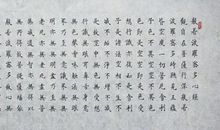 般若波羅蜜多心經
觀自在菩薩行深般若
波羅蜜多時照見五蘊
皆空度一切苦厄舍利
子色不異空空不異色
色即是空空即是色受
想行識亦復如是舍利
子是諸法空相不生不
滅不垢不淨不增不減
是故空中無色無受想
行識無眼耳鼻舌身意
無色聲香味觸法無眼
界乃至無意識界無無
明亦無無明盡乃至無
老死亦無老死盡無苦
集滅道無智亦無得以
無所得故菩提薩埵依
般若波羅蜜多故心無